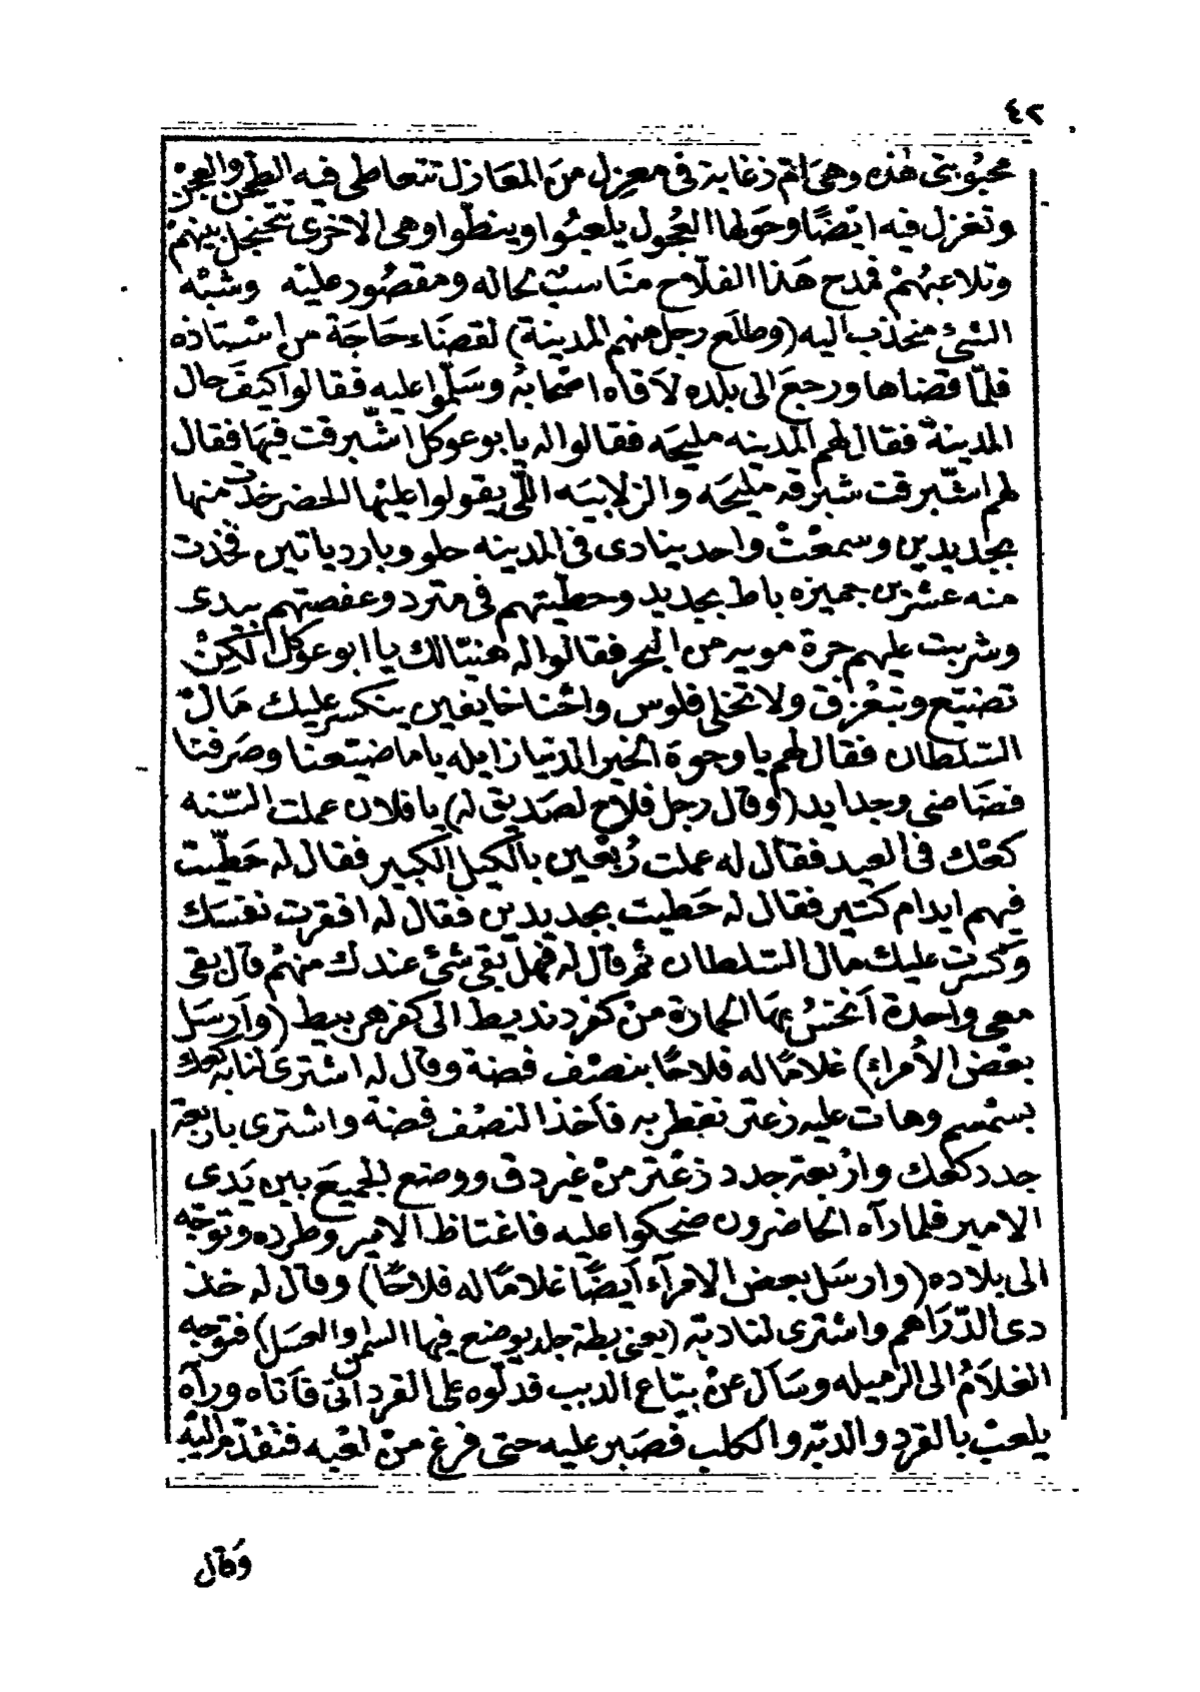 ٤٢
محبوبتى هذه وهى اتم ذغابة فى معزل من المعازل تتعاطى فيه الطحن والعجن
وتغزل فيه ايضًا وحولها العجول يلعبوا وينطّوا وهى الاخرى تتحنجل بينهم
وتلاعبهم فمدح هذا الفلّاح مناسبٌ لحاله ومقصور عليه وشبْه
الشئ منجذب اليه (وطلع رجل منهم المدينة) لقضاء حاجة من استاذه
فلمّا قضاها ورجع الى بلده لاقاه اصحابهُ وسلّموا عليه فقالوا كيف حال
المدينة فقال لهم المدينه مليحه فقالوا له يا بوعوكل اشّبرقت فيها فقال
لهم اشّبرقت شبرقه مليحه والزلابيه اللّى يقولوا عليها الحضر خدت منها
بجديدين وسمعْتْ واحد ينادى فى المدينه حلو وبارد ياتين فخدت
منه عشرين جميزه باط بجديد وحطّيتهم فى مترد وعفصتهم بيدى
وشربت عليهم جرة مويه من البحر فقالوا له هنيّالك يا ابو عوكل لكنْ
تضيّع وتبعْزق ولا تخلى فلوس واحْنا خايفين ينكسر عليك مال
السّلطان فقال لهم يا وجوة الخير الدنيا زايله ياما ضيّعنا وصرفنا
فضاضى وجدايد (وقال رجل فلاح لصديق له) يا فلان عملت السّنه
كعْك فى العيد فقال له عملت رُبْعين بالكيل الكبير فقال له حَطّيت
فيهم ايدام كتير فقال له حَطيت بجديدين فقال له افقرت نفسَك
وكَسرت عليك مال السّلطان ثم قال له فهل بقى شئ عندك منهم قال بقى
معى واحدة أنخسُ بها الحمارة من كفر دنديط الى كفر هربيط (وأرسَل
بعض الأمراء) غلامًا له فلاحًا بنصْف فضة وقال له اشترى لنا به كعك
بسمسم وهات عليه زعتر نفطر به فأخذ النصْف فضة واشترى بأربعة
جدد كعك واربعة جدد زعْتر منْ غير دق ووضع الجميع بين يَدى
الامير فلما رآه الحاضرون ضحكوا عليه فاغتاظ الامير وطرده وتوجّه
الى بلاده (وارسَل بعض الامرآء أيضًا غلامًا له فلاحًا) وقال له خذ
دى الدّراهم واشترى لنا دبّه (يعنى بطة جلد يوضع فيها السمن والعسَل) فتوجه
الغلامُ الى الرميله وسَأل عنْ بيّاع الدبب فدلّوه على القردآتى فأتاه ورآه
يلعبْ بالقرد والدبّه والكلب فصَبر عليه حتى فرغ منْ لعْبه فتقدّم اليْه
وقال